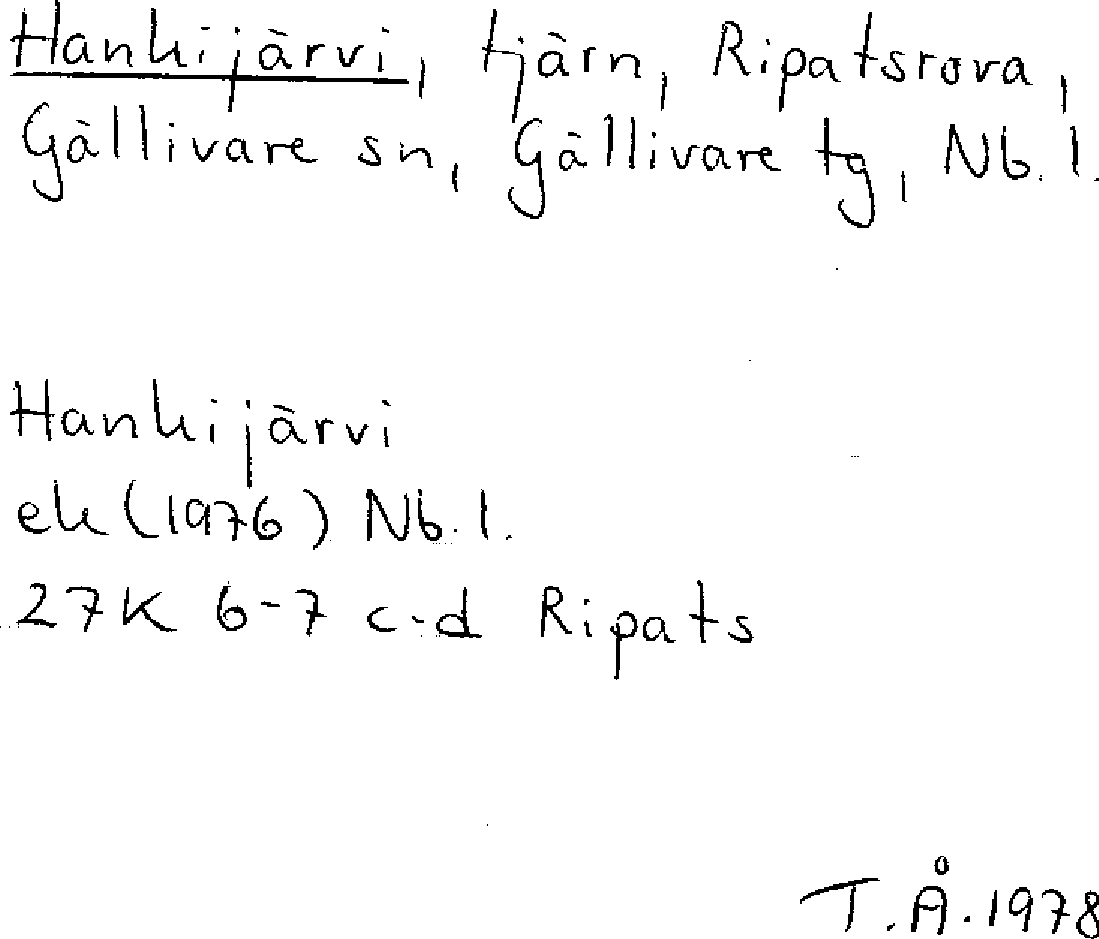 Hankijärvi, tjärn, Ripatsrova,
Gällivare sn, Gällivare tg, Nb. l.
Hankijärvi
ek (1976) Nb. l.
27K 6-7 c-d Ripats
T.Å. 1978